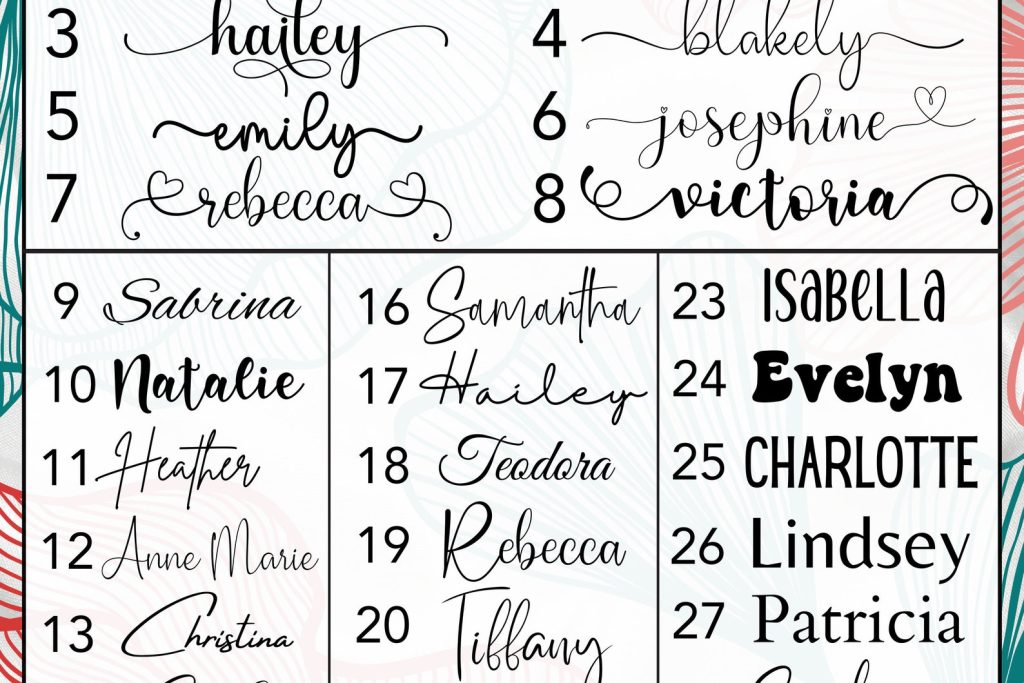 3 hailey
4 blakely
5 emily
6 josephine
7 rebecca
8 victoria
9 Sabrina
10 Natalie
11 Heather
12 Anne Marie
13 Christina
16 Samantha
17 Hailey
18 Teodora
19 Rebecca
20 Tiffany
23 Isabella
24 Evelyn
25 CHARLOTTE
26 Lindsey
27 Patricia